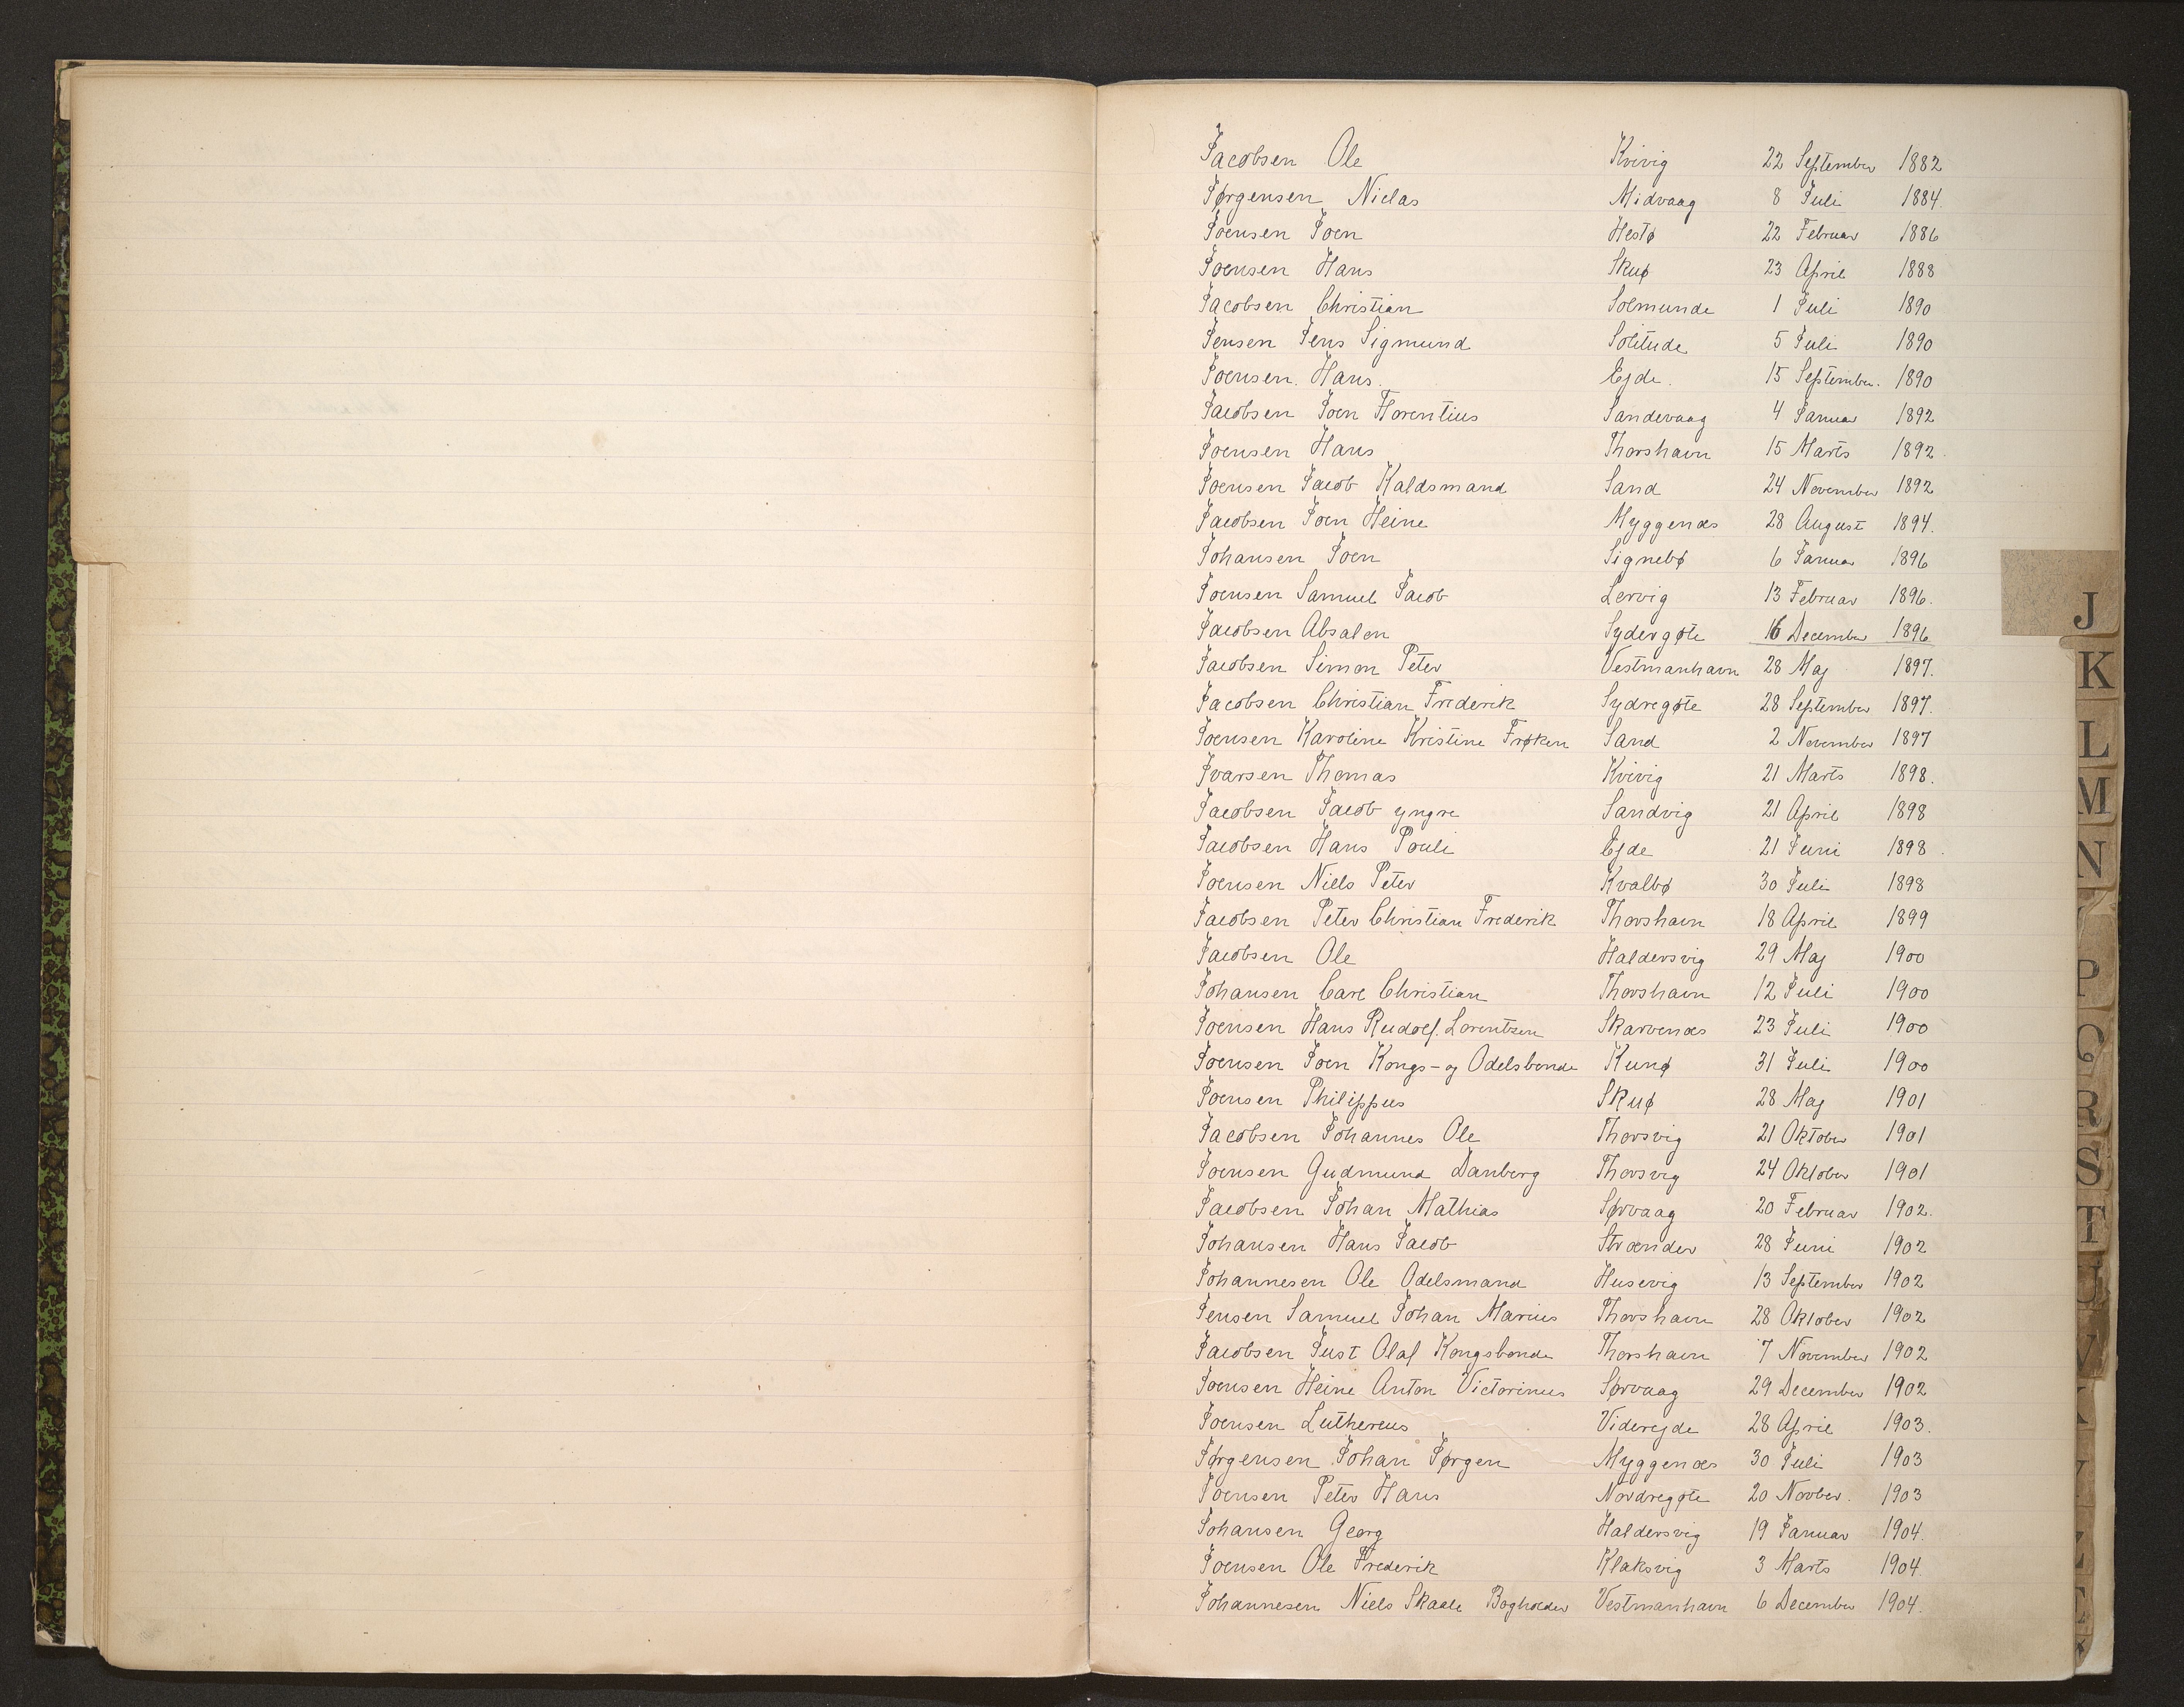 Jacobsen Ole Kvivig 22 September 1882
Jørgensen Niclas Midvaag 8 Juli 1884.
Joensen Joen Hestø 22 Februar 1886
Joensen Hans Skuø 23 April 1888
Jacobsen Christian Solmunde 1 Juli 1890
Jensen Jens Sigmund Solitude 5 Juli 1890
Joensen. Hans. Ejde. 15 September. 1890
Jacobsen Joen Florentius Sandevaag 4 Januar 1892
Joensen Hans Thorshavn 15 Marts 1892.
Joensen Jacob Kaldsmand Sand 24 November 1892
Jacobsen Joen Heine Myggenæs 28 August 1894.
Johansen Joen Signebø 6 Januar 1896
Joensen Samuel Jacob Lervig 13 Februar 1896.
Jacobsen Absalon Sydergøte 16 December 1896
Jacobsen Simon Peter Vestmanhavn 28 Maj 1897.
Jacobsen Christian Frederik Sydregøte 28 September 1897.
Joensen Karoline Kristine Frøken Sand 2 November 1897
Jvarsen Thomas Kvivig 21 Marts 1898.
Jacobsen Jacob yngre Sandvig 21 April 1898
Jacobsen Hans Pouli Ejde 21 Juni 1898.
Joensen Niels Peter Kvalbø 30 Juli 1898
Jacobsen Peter Christian Frederik Thorshavn 18 April 1899
Jacobsen Ole Haldersvig 29 Maj 1900
Johansen Carl Christian Thorshavn 12 Juli 1900
Joensen Hans Rudolf. Lorentzen Skarvenæs 23 Juli 1900
Joensen Joen Kongs- og Odelsbonde Kunø 31 Juli 1900
Joensen Philippus Skuø 28 Maj 1901
Jacobsen Johannes Ole Thorsvig 21 Oktober 1901
Joensen Gudmund Danberg Thorsvig 24 Oktober 1901
Jacobsen Johan Mathias Sørvaag 20 Februar 1902.
Johansen Hans Jacob Strænder 28 Juni 1902
Johannesen Ole Odelsmand Husevig 13 September 1902
Jensen Samuel Johan Marius Thorshavn 28 Oktober 1902
Jacobsen Just Olaf Kongsbonde Thorshavn 7 November 1902
Joensen Heine Anton Victorinus Sørvaag 29 December 1902
Joensen Luthereus Viderejde 28 April 1903.
Jørgensen Johan Jørgen Myggenæs 30 Juli 1903
Joensen Peter Hans Nordregøte 20 Novber. 1903
Johansen Georg Haldersvig 19 Januar 1904.
Joensen Ole Frederik Klaksvig 3 Marts 1904.
Johannesen Niels Skaale Bogholder Vestmanhavn 6 December 1904.
J
K
L
M
N
P
Q
R
S
T
U
V